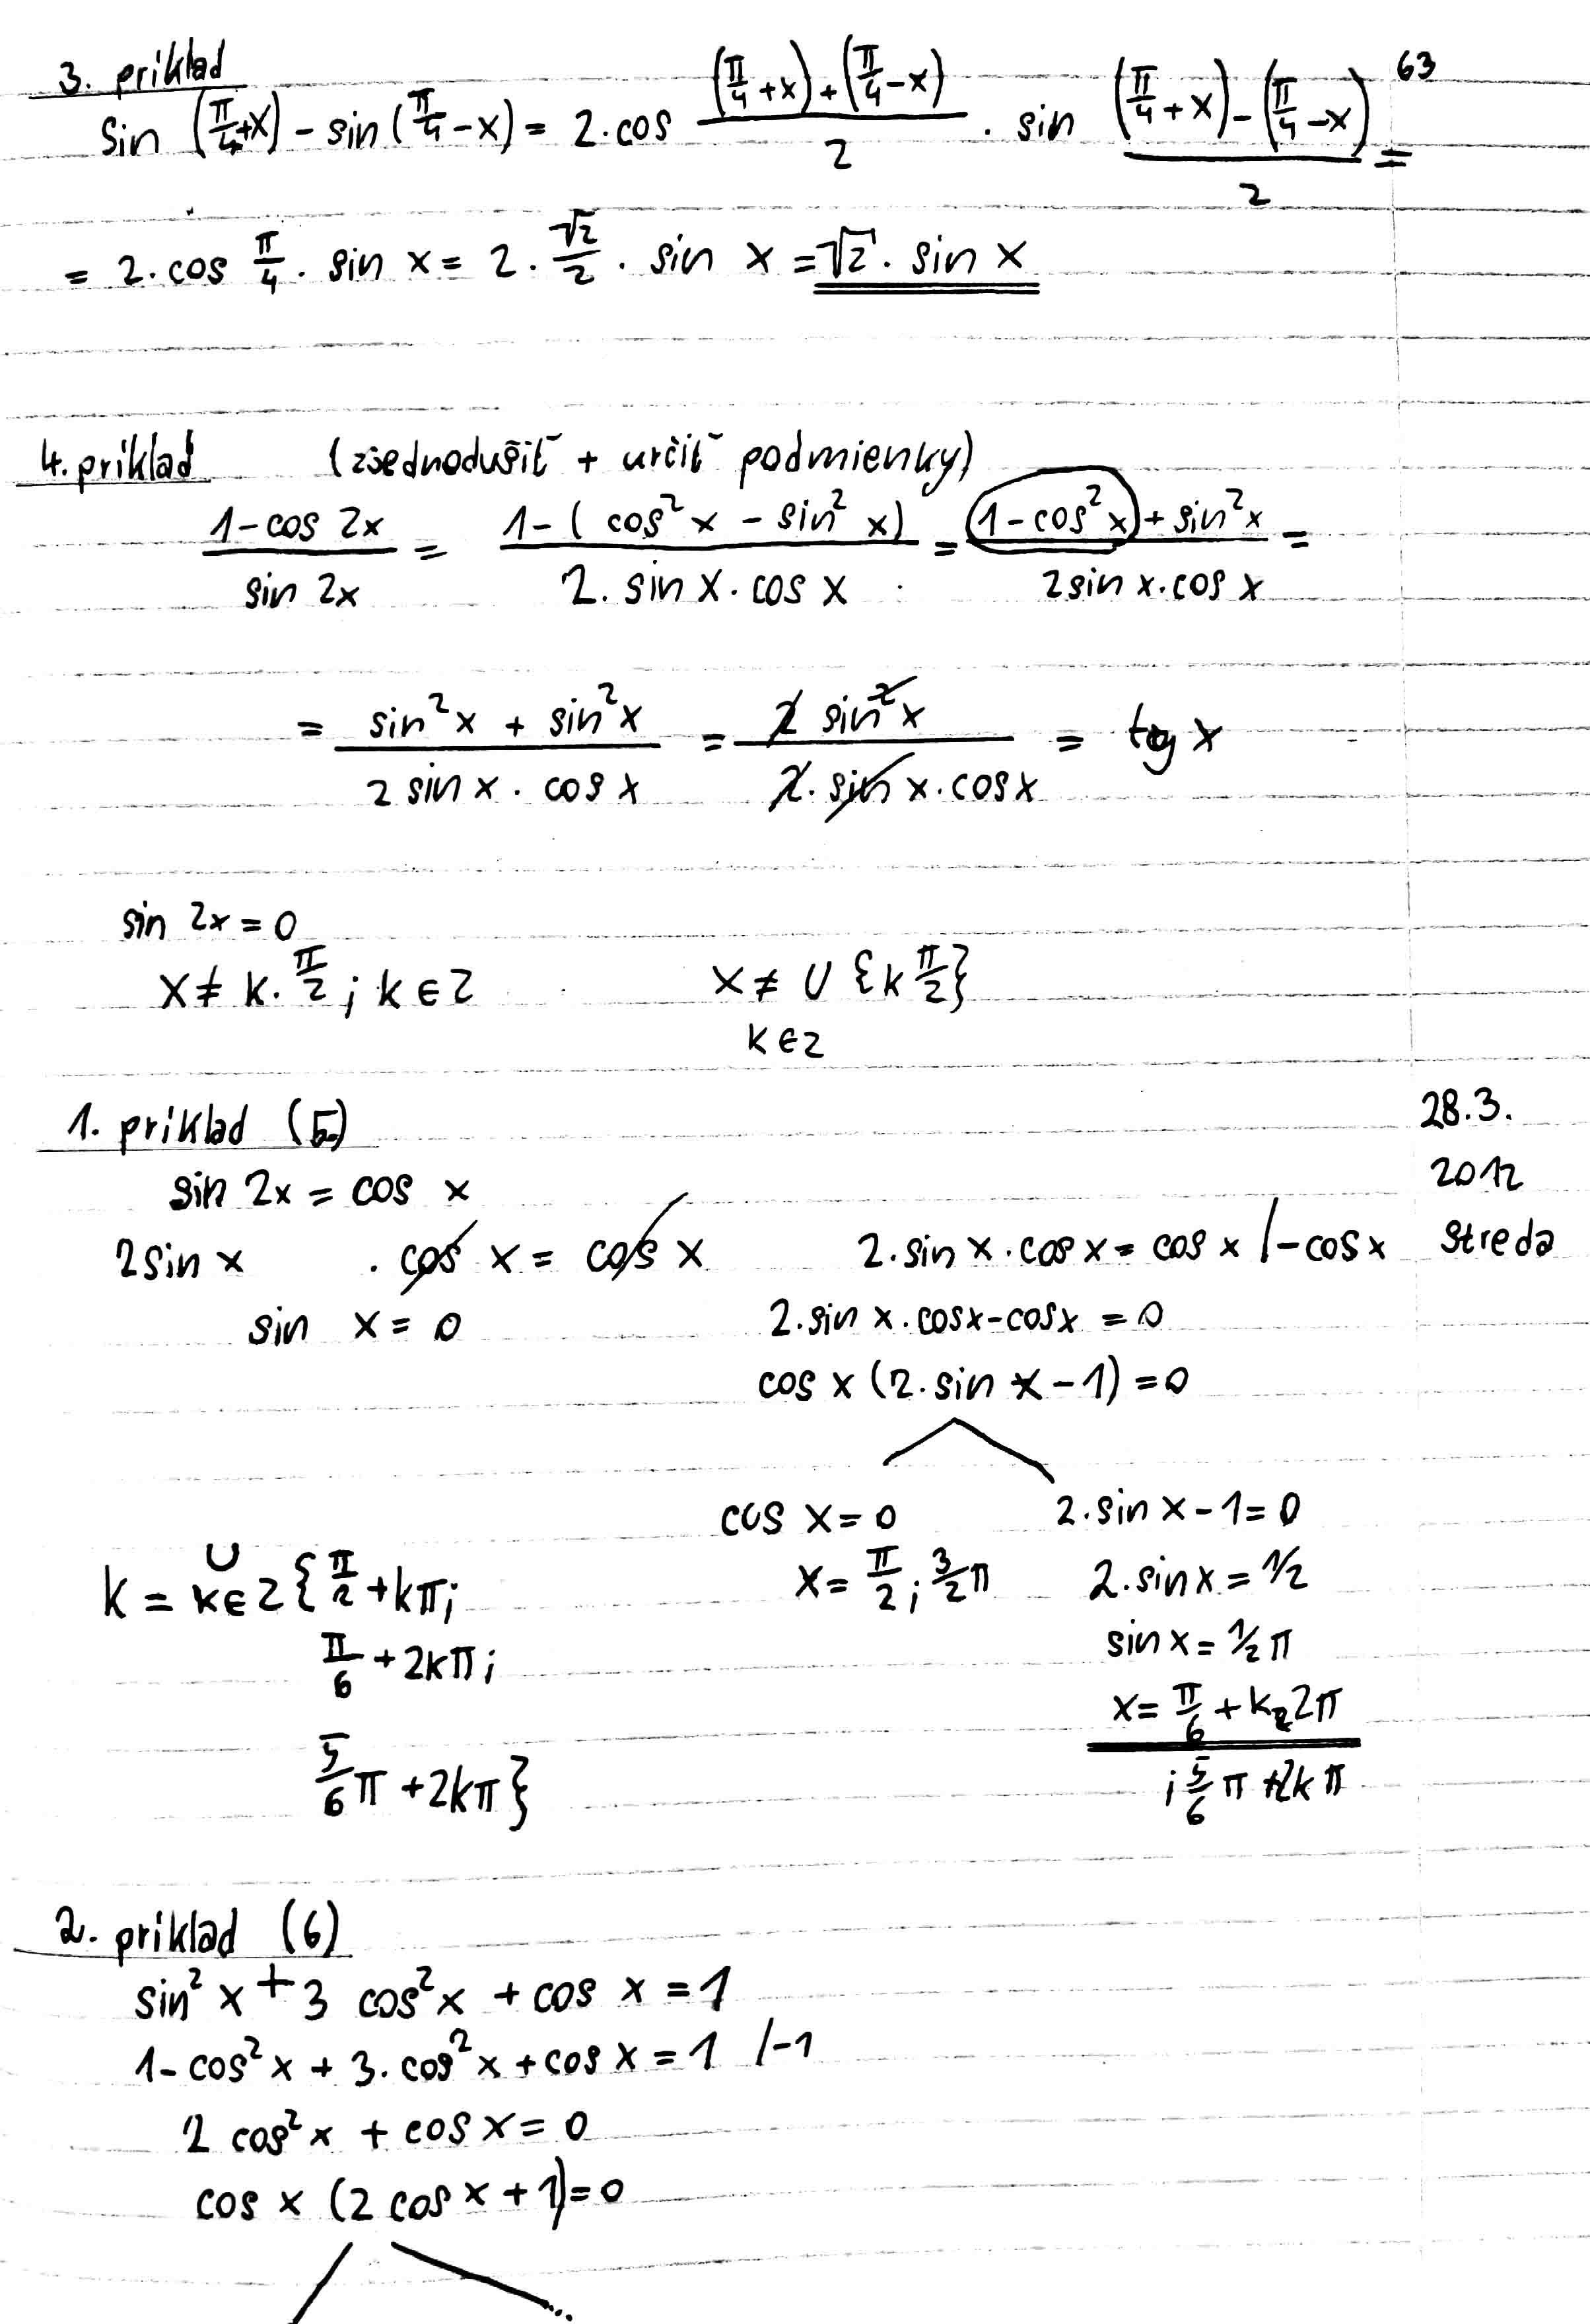 63
3. príklad
sin (π/4+x) - sin (π/4 - x) = 2·cos ((π/4 + x) + (π/4 - x))/2 · sin ((π/4 + x) - (π/4 - x))/2 =
= 2·cos π/4 · sin x = 2 · √2/2 · sin x = √2 · sin x
4. príklad (zjednodušiť + určiť podmienky)
(1 - cos 2x)/(sin 2x) = (1 - (cos² x - sin² x))/(2. sin x · cos x) = ((1 - cos² x) + sin² x)/(2 sin x · cos x) =
= (sin² x + sin² x)/(2 sin x · cos x) = (2 sin² x)/(2· sin x · cos x) = tg x
sin 2x = 0
x ≠ k · π/2 ; k ∈ Z x ≠ ∪ {k π/2}
k ∈ Z
1. príklad (5.) 28.3.
2012
streda
sin 2x = cos x
2 sin x · cos x = cos x 2·sin x · cos x = cos x /- cos x
sin x = 0 2·sin x · cos x - cos x = 0
cos x (2· sin x - 1) = 0
cos x = 0 2·sin x - 1 = 0
k = ∪ k∈Z {π/2 + kπ; x = π/2 ; 3/2 π 2·sin x = 1/2
π/6 + 2kπ; sin x = 1/2 π
x = π/6 + k 2π
5/6 π + 2kπ} ; 5/6 π + 2kπ
2. príklad (6)
sin² x + 3 cos² x + cos x = 1
1 - cos² x + 3· cos² x + cos x = 1 /-1
2 cos² x + cos x = 0
cos x (2 cos x + 1) = 0
...